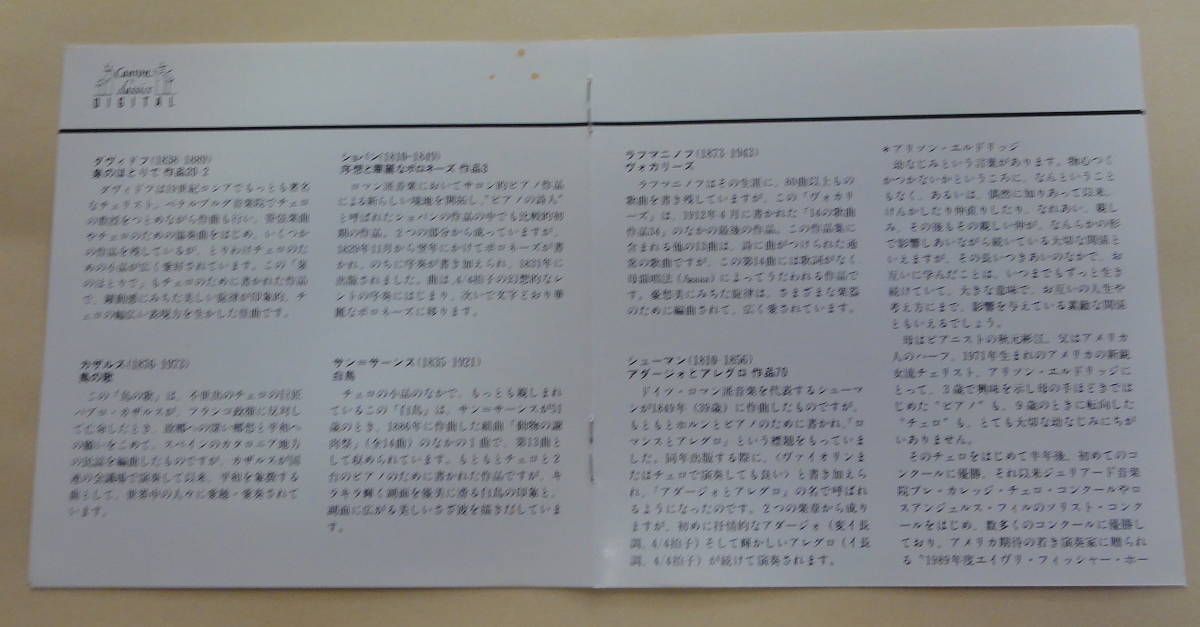 DIGITAL
ダヴィドフ(1838-1889)
泉のほとりで 作品20-2
ダヴィドフは19世紀ロシアでもっとも著名
なチェリスト。ペテルブルグ音楽院でチェロ
の教授をつとめながら作曲も行い、管弦楽曲
やチェロのための協奏曲をはじめ、いくつか
の作品を残しているが、とりわけチェロのた
めの小品が広く愛好されています。この「泉
のほとりで」もチェロのために書かれた作品
で、躍動感にみちた美しい旋律が印象的、チ
ェロの幅広い表現力を生かした佳曲です。
カザルス(1876-1973)
鳥の歌
この「鳥の歌」は、不世出のチェロの巨匠
パブロ・カザルスが、フランコ政権に反対し
て亡命したとき、故郷への深い郷愁と平和へ
の願いをこめて、スペインのカタロニア地方
の民謡を編曲したものですが、カザルスが国
連の会議場で演奏して以来、平和を象徴する
曲として、世界中の人々に愛聴・愛奏されて
います。
ショパン(1810-1849)
序奏と華麗なポロネーズ 作品3
ロマン派音楽においてサロン的ピアノ作品
による新らしい境地を開拓し、"ピアノの詩人"
と呼ばれたショパンの作品の中でも比較的初
期の作品。2つの部分から成っていますが、
1829年11月から翌年にかけてポロネーズが書
かれ、のちに序奏が書き加えられ、1831年に
出版されました。曲は、4/4拍子の幻想的なレ
ントの序奏にはじまり、次いで文字どおり華
麗なポロネーズに移ります。
サン=サーンス(1835-1921)
白鳥
チェロの小品のなかで、もっとも親しまれ
ているこの「白鳥」は、サン=サーンスが51
歳のとき、1886年に作曲した組曲「動物の謝
肉祭」(全14曲)のなかの1曲で、第13曲と
して収められています。もともとチェロと2
台のピアノのために書かれた作品ですが、キ
ラキラ輝く湖面を優美に滑る白鳥の印象と、
湖面に広がる美しいさざ波を描きだしていま
す。
ラフマニノフ(1873-1943)
ヴォカリーズ
ラフマニノフはその生涯に、80曲以上もの
歌曲を書き残していますが、この「ヴォカリ
ーズ」は、1912年4月に書かれた「14の歌曲
作品34」のなかの最後の作品。この作品集に
含まれる他の13曲は、詩に曲がつけられた通
常の歌曲ですが、この第14曲には歌詞がなく
母韻唱法によってうたわれる作品で
す。憂愁美にみちた旋律は、さまざまな楽器
のために編曲されて、広く愛されています。
シューマン(1810-1856)
アダージョとアレグロ 作品70
ドイツ・ロマン派音楽を代表するシューマ
ンが1849年(39歳)に作曲したものですが、
もともとホルンとピアノのために書かれ、「ロ
マンスとアレグロ」という標題をもっていま
した。同年出版する際に、(ヴァイオリンま
たはチェロで演奏しても良い)と書き加えら
れ、「アダージョとアレグロ」の名で呼ばれ
るようになったのです。2つの楽章から成り
ますが、初めに抒情的なアダージョ(変イ長
調、4/4拍子)そして輝かしいアレグロ(イ長
調、4/4拍子)が続けて演奏されます。
*アリソン・エルドリッジ
幼なじみという言葉があります。物心つく
かつかないかというころに、なんということ
もなく、あるいは、偶然に知りあって以来、
けんかしたり仲直りしたり、なれあい、親し
み、その後もその親しい仲が、なんらかの形
で影響しあいながら続いている大切な関係と
いえますが、その長いつきあいのなかで、お
互いに学んだことは、いつまでもずっと生き
続けていて、大きな意味で、お互いの人生や
考え方にまで、影響を与えている素敵な関係
ともいえるでしょう。
母はピアニストの秋元彬江、父はアメリカ
人のハーフ、1971年生まれのアメリカの新鋭
女流チェリスト、アリソン・エルドリッジに
とって、3歳で興味を示し母の手ほどきでは
じめた"ピアノ"も、9歳のときに転向した
"チェロ"も、とても大切な幼なじみにちが
いありません。
そのチェロをはじめて半年後、初めてのコ
ンクールに優勝。それ以来ジュリアード音楽
院プレ・カレッジ・チェロ・コンクールやロ
スアンジェルス・フィルのソリスト・コンク
ールをはじめ、数多くのコンクールに優勝し
ており、アメリカ期待の若き演奏家に贈られ
る"1989年度エイヴリ・フィッシャー・ホー